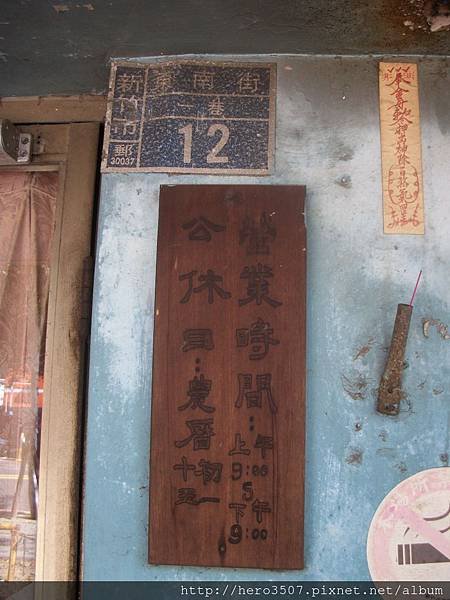 新竹市
東南街
一巷
12
郵
30037
營業時間：上午9:00 5 下午9:00
公休日：農曆初一
十五
http://hero3507.pixnet.net/album